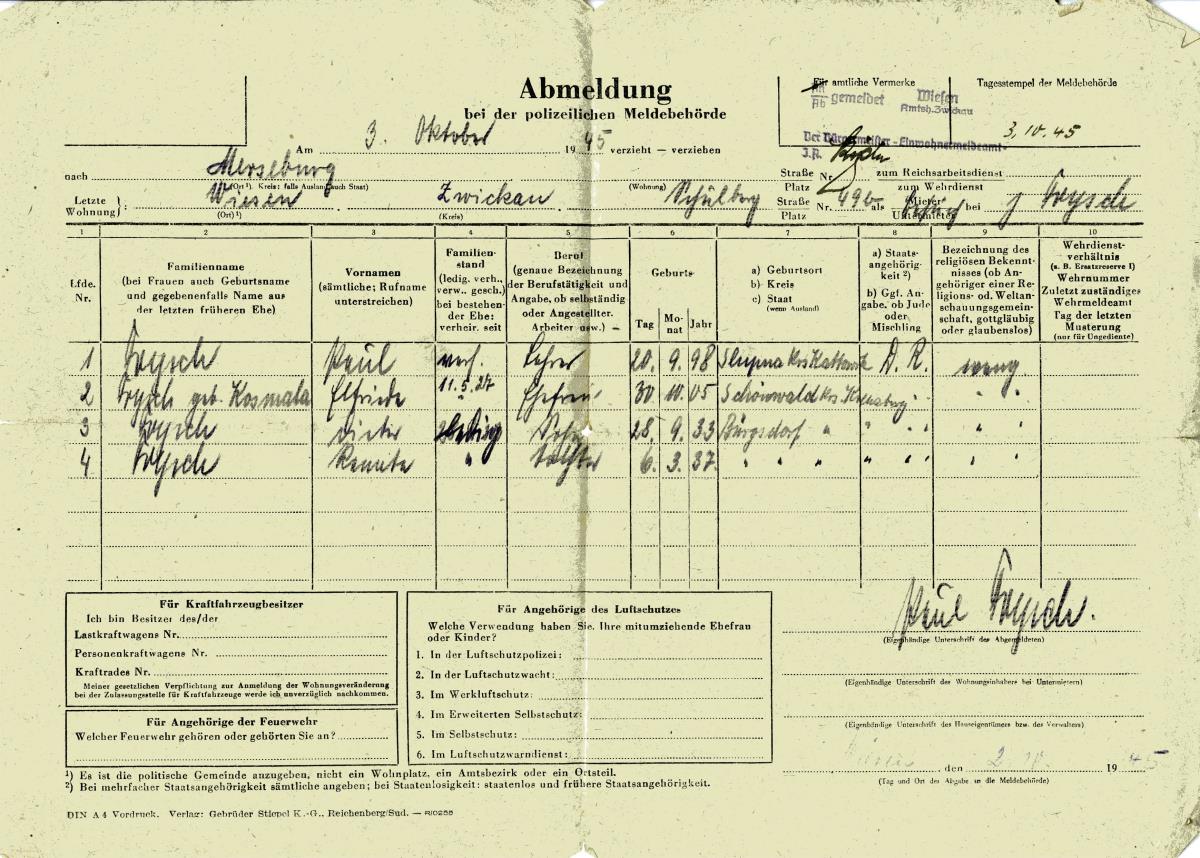 Abmeldung
bei der polizeilichen Meldebehörde
Für amtliche Vermerke
Tagesstempel der Meldebehörde
An
Ab gemeldet Wiesen
Amtsh. Zwickau
3.10.45
Der Bürgermeister - Einwohnermeldeamt-
J.A.
Am 3. Oktober 1945 verzieht — verziehen
nach Merseburg
(Ort ¹). Kreis: falls Ausland, auch Staat)
Straße
Platz Nr.
zum Reichsarbeitsdienst
zum Wehrdienst
Letzte
Wohnung}: Wiesen Zwickau (Wohnung) Schulberg Straße
Platz Nr. 49b als Mieter
Untermieter bei
(Ort ¹) (Kreis)
1 2 3 4 5 6 7 8 9 10
Lfde.
Nr.
Familienname
(bei Frauen auch Geburtsname
und gegebenenfalls Name aus
der letzten früheren Ehe)
Vornamen
(sämtliche; Rufname
unterstreichen)
Familien-
stand
(ledig. verh.,
verw., gesch.)
bei bestehen-
der Ehe:
verheir. seit
Beruf
(genaue Bezeichnung
der Berufstätigkeit und
Angabe, ob selbständig
oder Angestellter.
Arbeiter usw.) —
Geburts-
Tag Mo-
nat Jahr
a) Geburtsort
b) Kreis
c) Staat
(wenn Ausland)
a) Staats-
angehörig-
keit ²)
b) Ggf. An-
gabe, ob Jude
oder
Mischling
Bezeichnung des
religiösen Bekennt-
nisses (ob An-
gehöriger einer Re-
ligions- od. Weltan-
schauungsgemein-
schaft, gottgläubig
oder glaubenslos)
Wehrdienst-
verhältnis
(z. B. Ersatzreserve I)
Wehrnummer
Zuletzt zuständiges
Wehrmeldeamt
Tag der letzten
Musterung
(nur für Ungediente)
1 Paul verh. Lehrer 20. 9. 98 Slupna Krs. Kattowitz D. R. evang.
2 geb. Kosmala Elfriede 11.5.27 Ehefrau 30. 10. 05 Schönwald Krs. Kreuzburg " "
3 Dieter ledig Sohn 28. 9. 33 Bürgsdorf " " " " " "
4 Renate " Tochter 6. 3. 37. " " " " " " " "
Für Kraftfahrzeugbesitzer
Ich bin Besitzer des/der
Lastkraftwagens Nr.
Personenkraftwagens Nr.
Kraftrades Nr.
Meiner gesetzlichen Verpflichtung zur Anmeldung der Wohnungsveränderung
bei der Zulassungsstelle für Kraftfahrzeuge werde ich unverzüglich nachkommen.
Für Angehörige der Feuerwehr
Welcher Feuerwehr gehören oder gehörten Sie an?
Für Angehörige des Luftschutzes
Welche Verwendung haben Sie. Ihre mitumziehende Ehefrau
oder Kinder?
1. In der Luftschutzpolizei:
2. In der Luftschutzwacht:
3. Im Werkluftschutz:
4. Im Erweiterten Selbstschutz:
5. Im Selbstschutz:
6. Im Luftschutzwarndienst:
Paul
(Eigenhändige Unterschrift des Abgemeldeten)
(Eigenhändige Unterschrift des Wohnungsinhabers bei Untermietern)
(Eigenhändige Unterschrift des Hauseigentümers bzw. des Verwalters)
den 2. 1945
(Tag und Ort der Abgabe an die Meldebehörde)
¹) Es ist die politische Gemeinde anzugeben, nicht ein Wohnplatz, ein Amtsbezirk oder ein Ortsteil.
²) Bei mehrfacher Staatsangehörigkeit sämtliche angeben; bei Staatenlosigkeit: staatenlos und frühere Staatsangehörigkeit.
DIN A 4 Vordruck. Verlag: Gebrüder Stiepel K.-G., Reichenberg/Sud. — R/0255